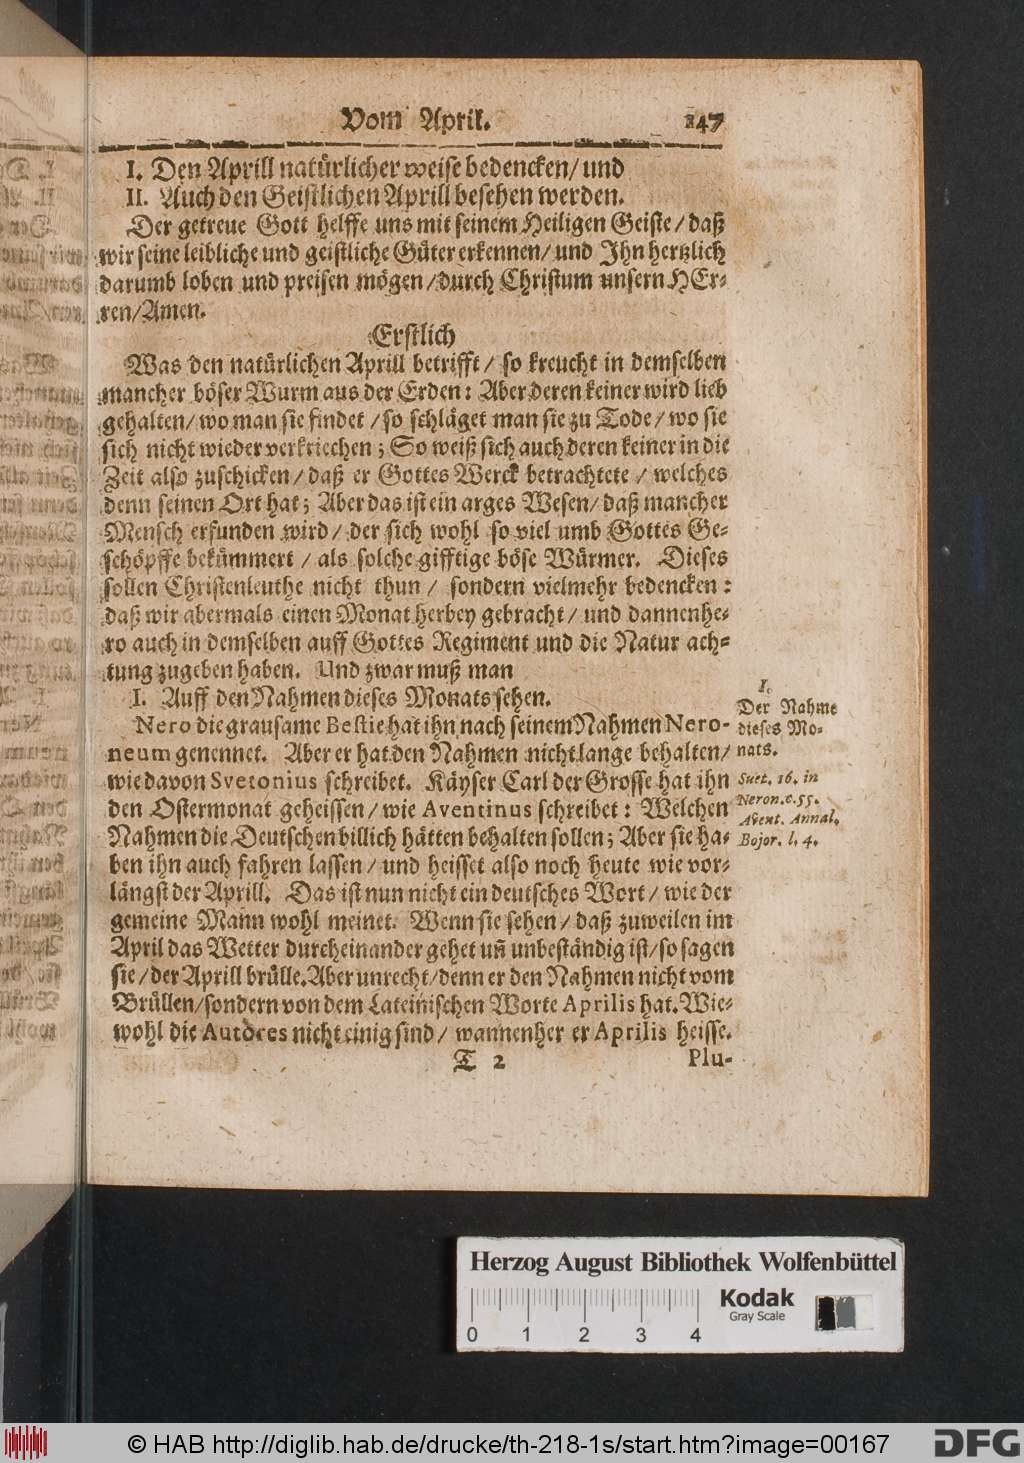 Vom April. 147
I. Den Aprill natürlicher weise bedencken/ und
II. Auch den Geistlichen Aprill besehen werden.
Der getreue Gott helffe uns mit seinem Heiligen Geiste/ daß
wir seine leibliche und geistliche Güter erkennen/ und Ihn hertzlich
darumb loben und preisen mögen/ durch Christum unsern HEr-
ren/ Amen.
Erstlich
Was den natürlichen Aprill betrifft/ so kreucht in demselben
mancher böser Wurm aus der Erden: Aber deren keiner wird lieb
gehalten/ wo man sie findet/ so schläget man sie zu Tode/ wo sie
sich nicht wieder verkriechen; So weiß sich auch deren keiner in die
Zeit also zuschicken/ daß er Gottes Werck betrachtete/ welches
denn seinen Ort hat; Aber das ist ein arges Wesen/ daß mancher
Mensch erfunden wird/ der sich wohl so viel umb Gottes Ge-
schöpffe bekümmert/ als solche gifftige böse Würmer. Dieses
sollen Christenleuthe nicht thun/ sondern vielmehr bedencken:
daß wir abermals einen Monat herbey gebracht/ und dannenhe-
ro auch in demselben auff Gottes Regiment und die Natur ach-
tung zugeben haben. Und zwar muß man
I. Auff den Nahmen dieses Monats sehen.
Nero die grausame Bestie hat ihn nach seinem Nahmen Nero-
neum genennet. Aber er hat den Nahmen nicht lange behalten/
wie davon Svetonius schreibet. Käyser Carl der Grosse hat ihn
den Ostermonat geheissen/ wie Aventinus schreibet: Welchen
Nahmen die Deutschen billich hätten behalten sollen; Aber sie ha-
ben ihn auch fahren lassen/ und heisset also noch heute wie vor-
längst der Aprill. Das ist nun nicht ein deutsches Wort/ wie der
gemeine Mann wohl meinet. Wenn sie sehen/ daß zuweilen im
April das Wetter durcheinander gehet uñ unbeständig ist/ so sagen
sie/ der Aprill brülle. Aber unrecht/ denn er den Nahmen nicht vom
Brüllen/ sondern von dem Lateinischen Worte Aprilis hat. Wie-
wohl die Autores nicht einig sind/ wannenher er Aprilis heisse.
T 2 Plu-
I.
Der Nahme
dieses Mo-
nats.
Suet. 16. in
Neron. c. 55.
Avent. Annal.
Bojor. l. 4.
Herzog August Bibliothek Wolfenbüttel
Kodak
Gray Scale
0 1 2 3 4
© HAB http://diglib.hab.de/drucke/th-218-1s/start.htm?image=00167
DFG